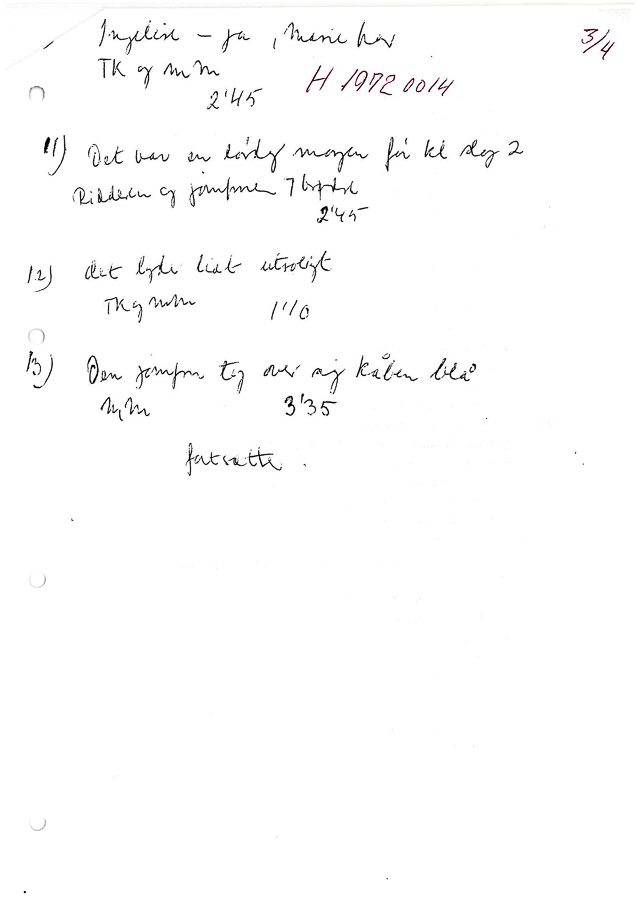 Ingelise - ja, Marie har
3/4
TK og MM
H 1972 0014
2'45
11) Det var en lørdag morgen før kl slog 2
Ridderen og jomfruen
2'45
12) det lyder lidt utroligt
TK og MM
1'10
13) Den jomfru tog over sig kåben blå
MM
3'35
fortsætte.